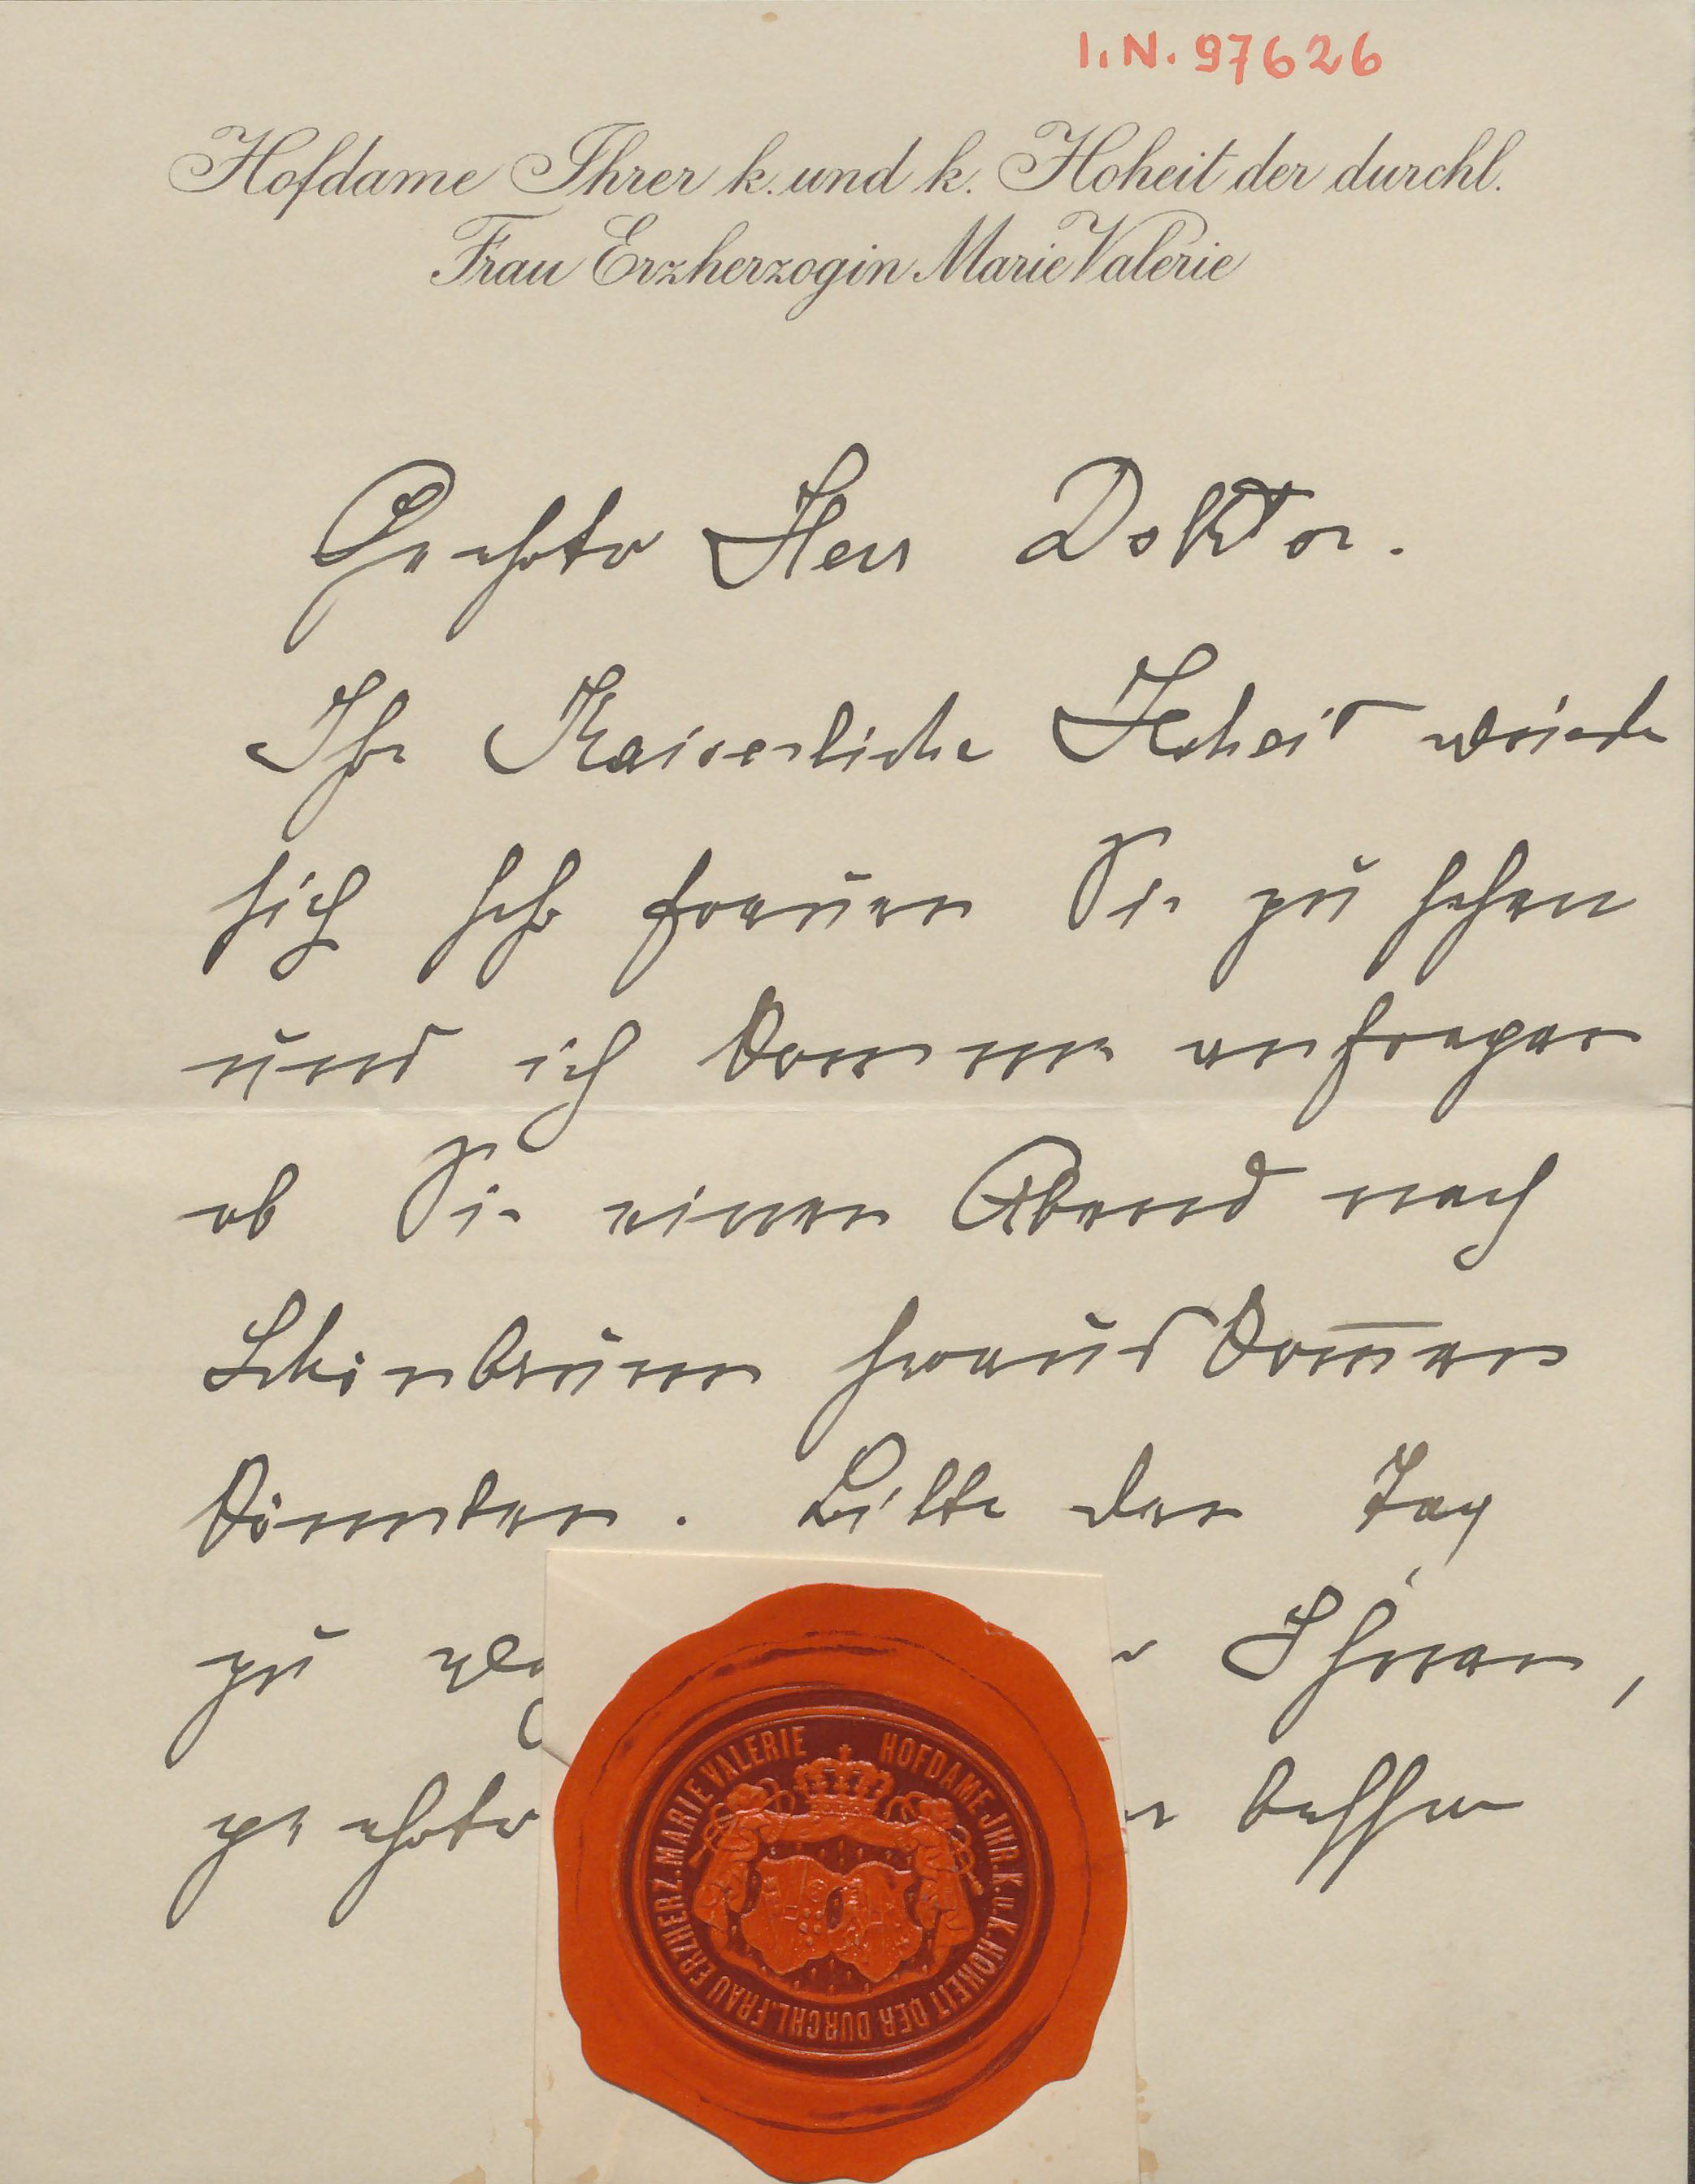 I.N. 97626
Hofdame Ihrer k. und k. Hoheit der durchl.
Frau Erzherzogin Marie Valerie
Geehrter Herr Doktor.
Ihre Kaiserliche Hoheit würde
sich sehr freuen Sie zu sehen
und ich komme anfragen
ob Sie einen Abend nach
Schönbrunn herauskom̅en
könnten. Bitte den Tag
zu Ihnen,
geehrter
HOFDAME JHR. K. u. K. HOHEIT DER DURCHL. FRAU ERZHERZ. MARIE VALERIE